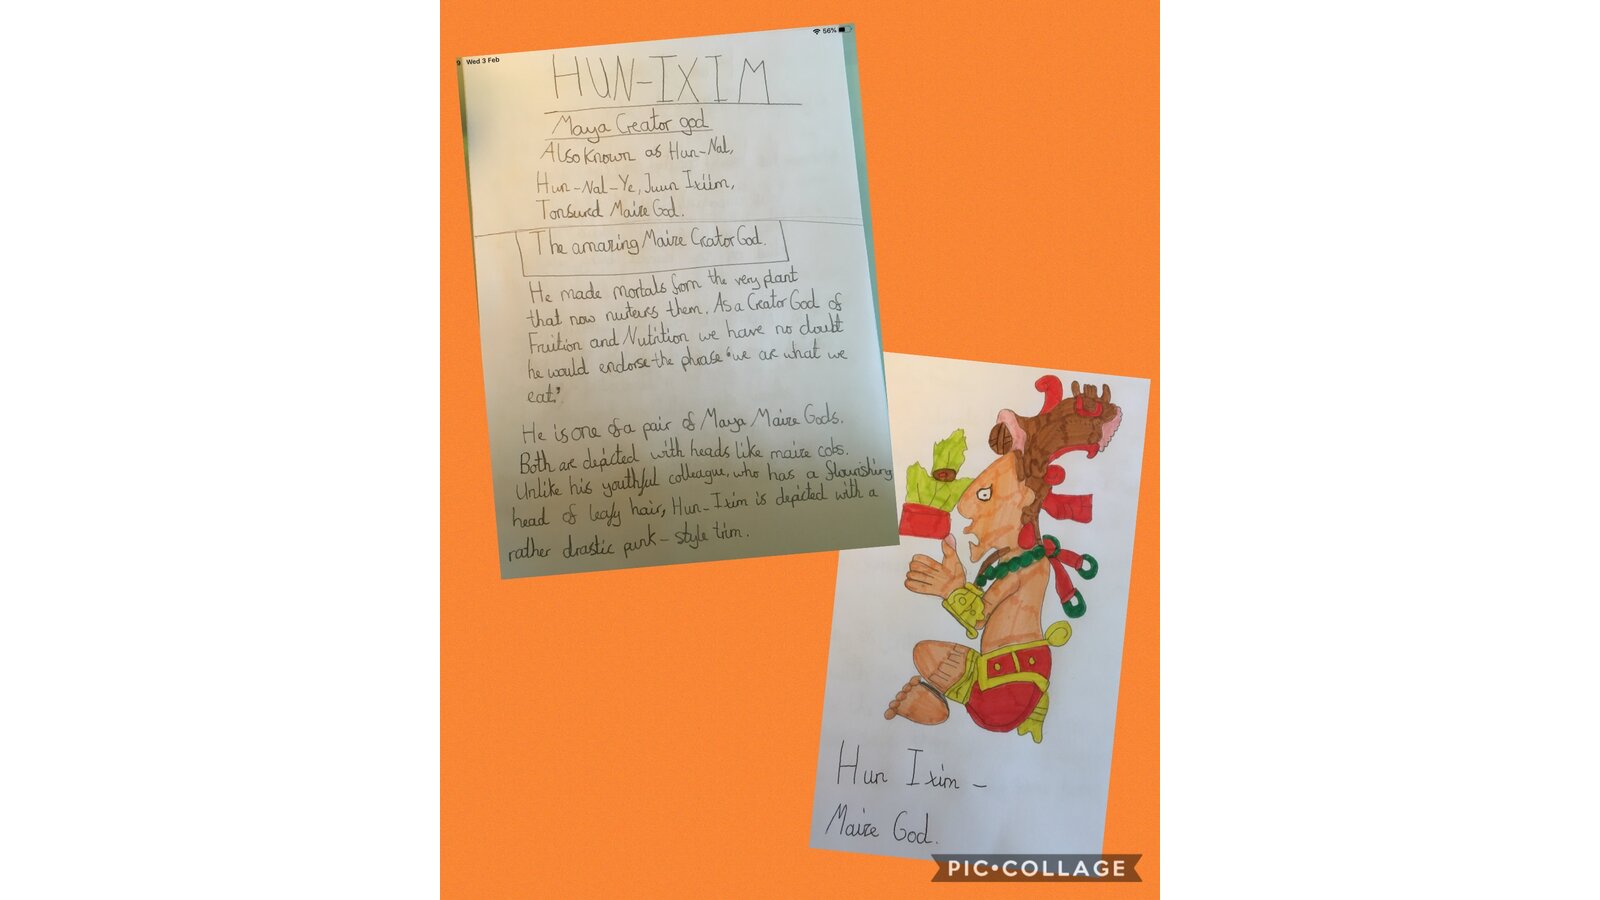 56%
9 Wed 3 Feb
HUN-IXIM
Maya Creator god
Also known as Hun-Nal,
Hun-Nal-Ye, Juun Ixiim,
Tonsured Maize God.
The amazing Maize Creator God.
He made mortals from the very plant
that now nurtures them. As a Creator God of
Fruition and Nutrition we have no doubt
he would endorse the phrase 'we are what we
eat.'
He is one of a pair of Maya Maize Gods.
Both are depicted with heads like maize cobs.
Unlike his youthful colleague, who has a flourishing
head of leafy hair, Hun-Ixim is depicted with a
rather drastic punk-style trim.
Hun Ixim -
Maize God.
PIC•COLLAGE